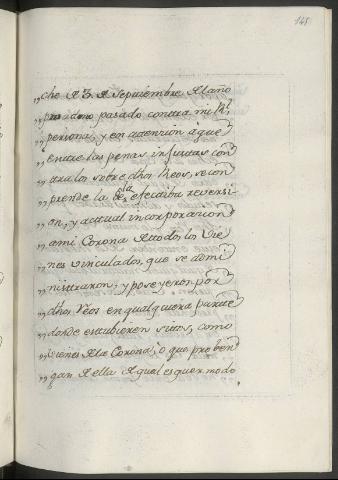 148
„che de 3. de Septiembre del año
„proximo pasado contra mi Rl.
„persona, y en atencion à que
„entre las penas infuntas con
„tra los sobre dhos Reos, se con
„prende la de la efectiba reversi
„on, y actual incorporacion
„ami Corona de todos los Vie
„nes vinculados, que se domi
„nistraron, y poseyeron por
„dhos Reos en qualquiera parte
„donde estubieren sitos, como
„vienes de la Corona, ò que proben
„gan de ella de qualesquer modo